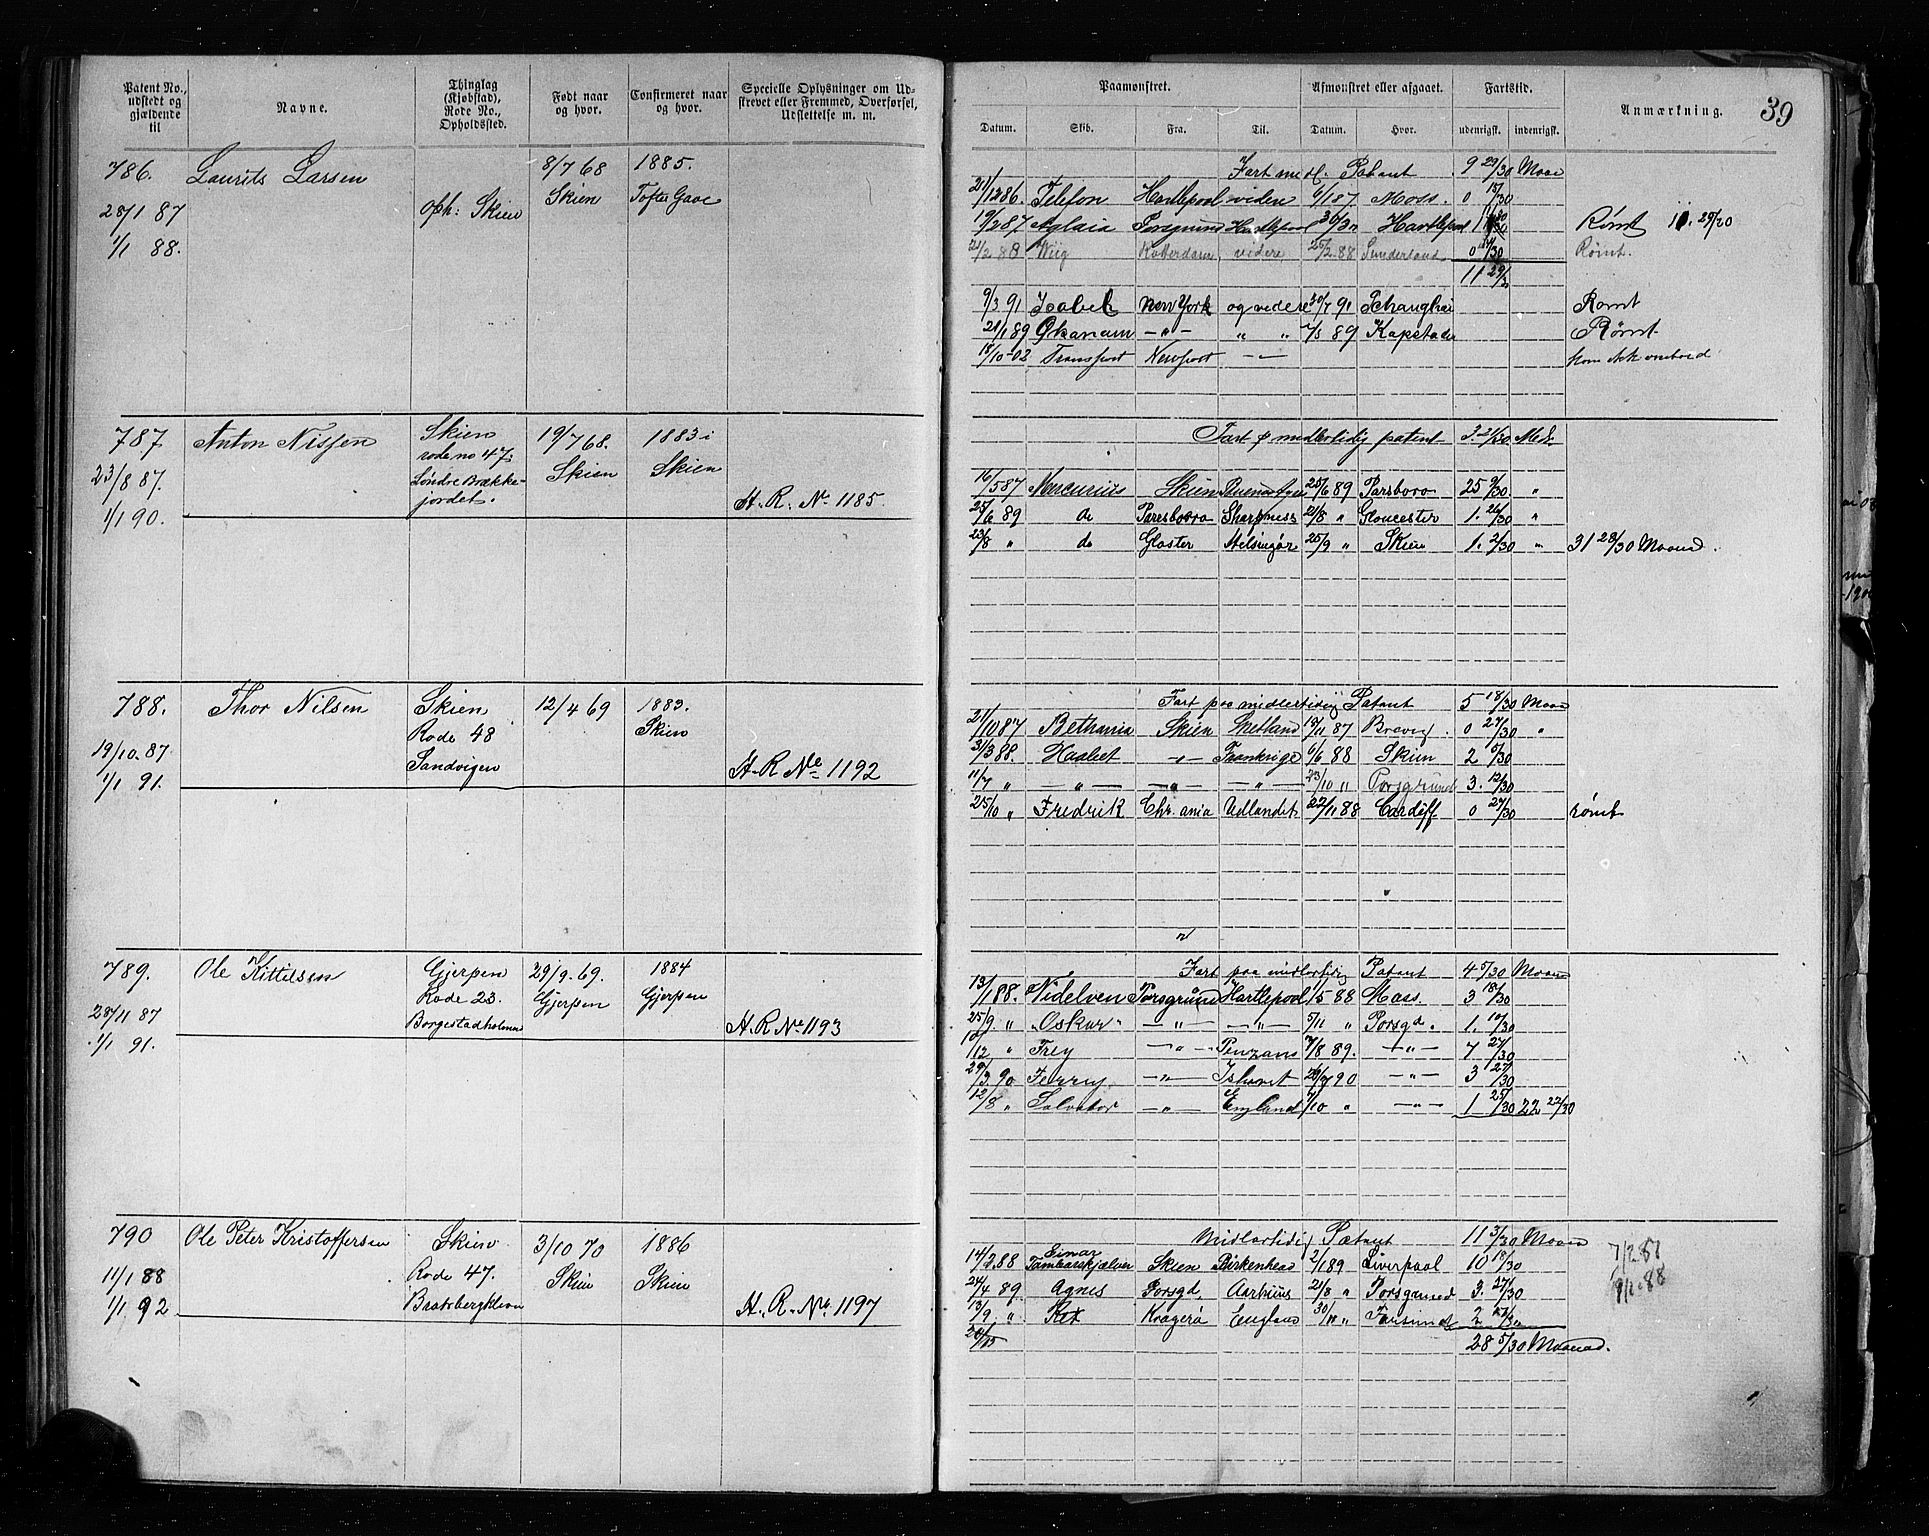 39
Patent No., udstedt og gjældende til
Navne.
Thinglag (Kjøbstad), Rode No., Opholdssted.
Født naar og hvor.
Confirmeret naar og hvor.
Specielle Oplysninger om Udstrevet eller Fremmed, Overførsel, Udslettelse m. m.
Paamønstret.
Afmønstret eller afgaaet.
Fartstid.
Anmærkning.
Datum. Skib. Fra. Til. Datum. Hvor. udenrigsk. indenrigsk.
786. Laurits Larsen 8/7 68 1885.
oph: Skien Skien Tofte Gave
28/1 87
1/1 88.
Fart midl. Patent 9 29/30 Maan
21/12 86. Telefon Hartlepool viden 6/1 87 Moss. 0 15/30
19/2 87 Aglaia Porsgrund Hartlepool Hartlepool 1 Rømt 11. 29/30
21/2 88 Wiig videre 25/2 88 Sunderland 0 Rømt.
11 29/30
9/3 91 Isabel New York og videre 30/7 91 Schanghai Rømt
21/1 89 " " 7/5 89 Kapstaden Rømt
18/10-02 Transport Newport — kom ikk ombord
787 Anton Nissen Skien 19/7 68. 1883 i
rode no 47; Skien Skien
23/8 87. Søndre Brække-
jordet. H. R. No 1185.
1/1 90.
Fart p midlertidig patent 3. 21/30 Md.
16/5 87 Mercurius Skien 25/6 89 Parsboro 25 9/30 "
25/6 89 do Paresboro Sharpness 21/8 " Gloucester 1. 26/30 "
23/8 " do Gloster Helsingør 25/9 " Skien 1. 2/30 " 31 28/30 Maaned.
788. Thor Nilsen Skien 12/4 69 1883.
Rode 48 Skien
19/10.87 Sandvigen H. R No 1192
1/1 91.
Fart paa midlertidig Patent 5 18/30 Maan
21/10 87 Bethania Skien Shetland 19/11 87 Brevig. 0 27/30 "
31/3 88. Haabet — " — Frankrige 6/6 88 Skien 2 5/30
11/7 " — " — — " — — " — 23/10 " Porsgrund 3. 12/30
25/10 " Fredrik Chr.ania Udlandet 22/11 88 Cardiff 0 27/30 rømt
789. Ole Kittilsen Gjerpen 29/9. 69. 1884
Rode 23. Gjerpen Gjerpen
28/11 87 Borgestadholmen H. R No 1193
1/1 91.
Fart paa midlertidig Patent 4 5/30 Maan
13/1 88. Nidelven Porsgrund Hartlepool 1/5 88 Moss 3 18/30
25/9 " "Oskar" — " — — " — 5/11 " Porsgd. 1. 10/30
12 " Frey — " — Penzans 7/8 89. — " — 7 27/30
29/3 90 Ferry — " — Ishavet 90 — " — 3 27/30
12/8 " Salvator — " — England 7/10 " — " — 1 25/30 22 22/30
790 Ole Peter Kristoffersen Skien 3/10 70 1886
11/1 88 Rode 47. Skien Skien
1/1 92 Bratsbergkleva H. R. No. 1197
Midlertidig Patent 11 3/30 Maan
14/2 88 Einar Tambarskjælver Skien Birkenhead 2/1 89 Liverpool 10 18/30
24/4 89. Agnes Porsgd. Aarhüus 21/8 " Porsgrund 3. 27/30
13/9 " Rex Kragerø England 30/11 " Farsund 2
28 5/30 Maaned.